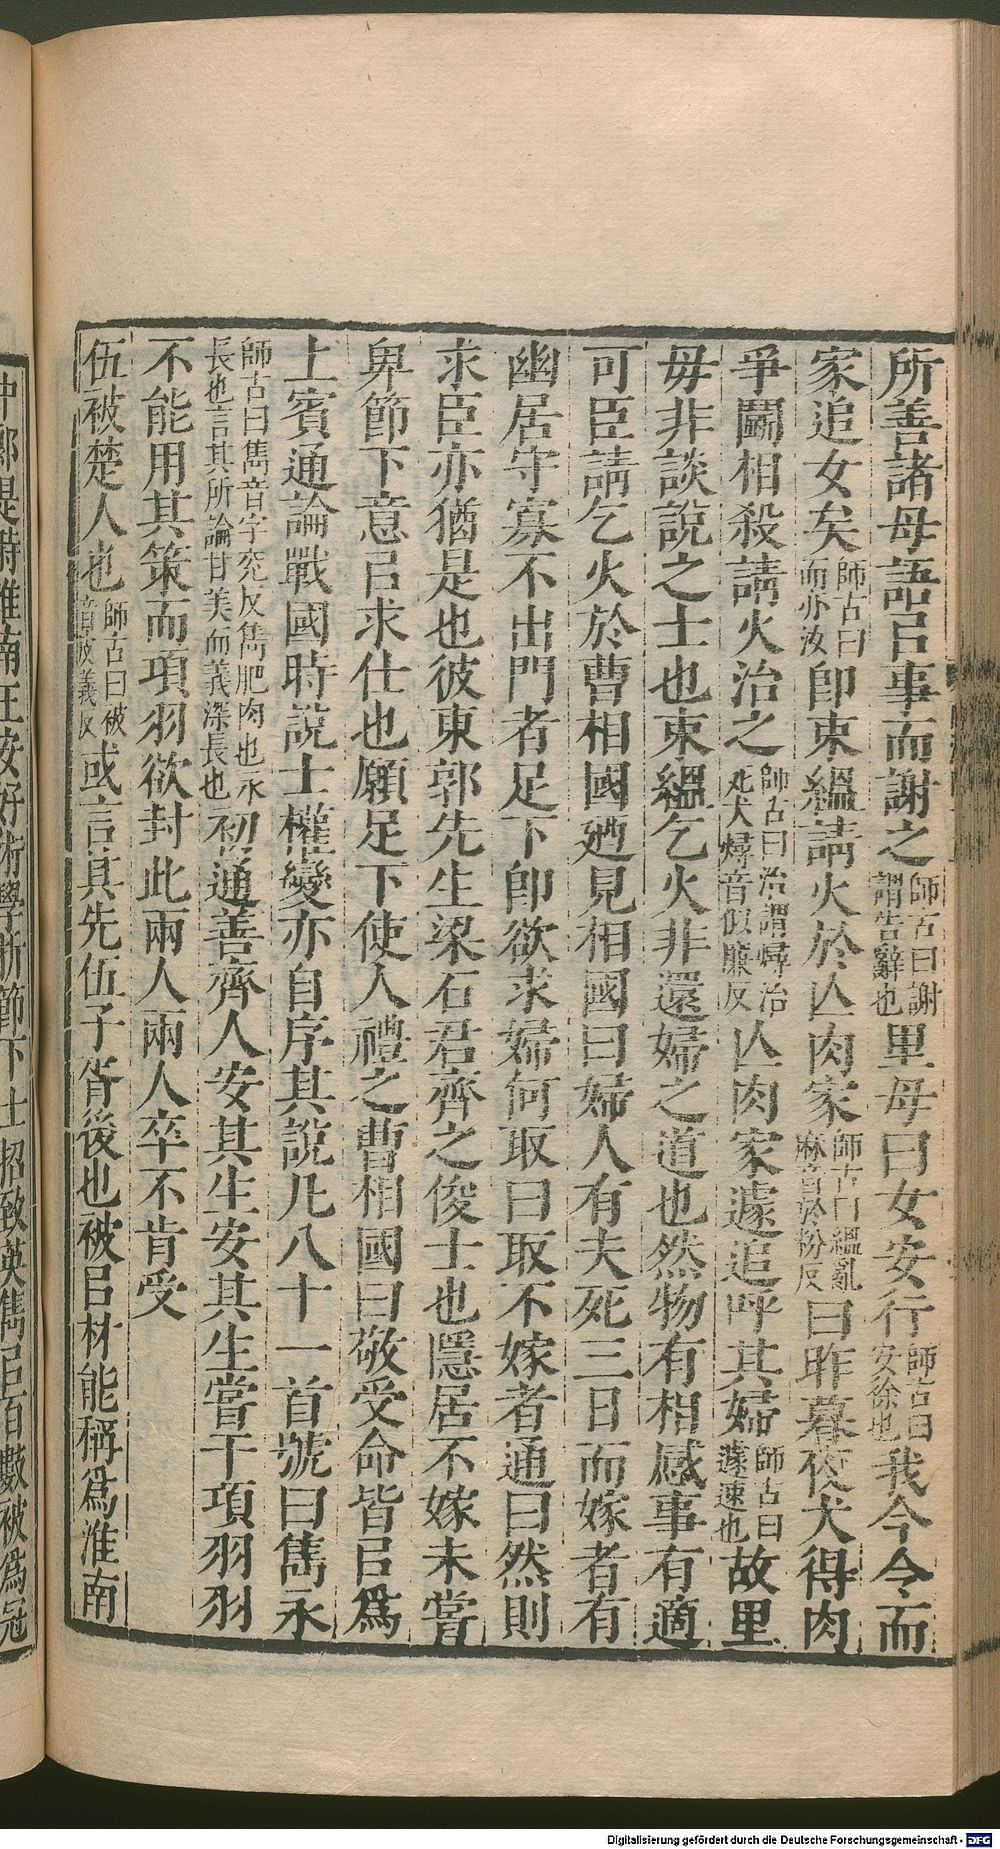 所善諸母語㠯事而謝之師古曰謝謂告辭也里母曰女安行師古曰安徐也我今令而
家追女矣師古曰而亦汝即束縕請火於亾肉家師古曰縕亂麻音於粉反曰昨暮夜犬得肉
爭鬭相殺請火治之師古曰治謂燖治死犬燖音似廉反亾肉家遽追呼其婦師古曰遽速也故里
母非談說之士也束縕乞火非還婦之道也然物有相感事有適
可臣請乞火於曹相國廼見相國曰婦人有夫死三日而嫁者有
幽居守寡不出門者足下即欲求婦何取曰取不嫁者通曰然則
求臣亦猶是也彼東郭先生梁石君齊之俊士也隱居不嫁未嘗
卑節下意㠯求仕也願足下使人禮之曹相國曰敬受命皆㠯爲
上賓通論戰國時說士權變亦自序其說凡八十一首號曰雋永
師古曰雋音字兖反雋肥肉也永長也言其所論甘美而義深長也初通善齊人安其生安其生嘗干項羽羽
不能用其策而項羽欲封此兩人兩人卒不肯受
伍被楚人也師古曰被音皮義反或言其先伍子胥後也被㠯材能稱爲淮南
中郎是時淮南王安好術學折節下士招致英雋㠯百數被爲冠
Digitalisierung gefördert durch die Deutsche Forschungsgemeinschaft - DFG